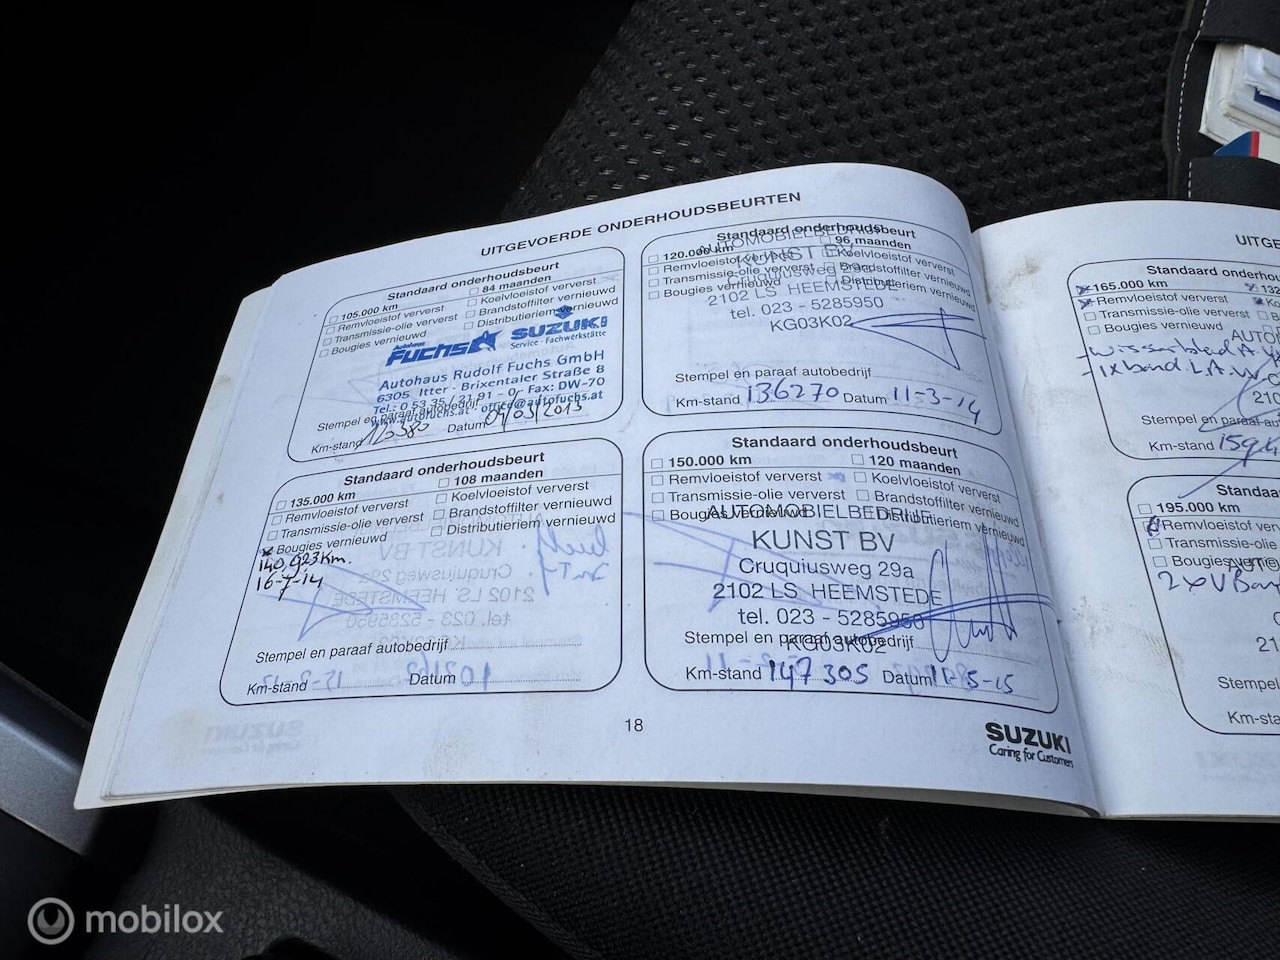 UITGEVOERDE ONDERHOUDSBEURTEN
Standaard onderhoudsbeurt
105.000 km
84 maanden
Remvloeistof ververst
Koelvloeistof ververst
Transmissie-olie ververst
Brandstoffilter vernieuwd
Bougies vernieuwd
Distributieriem vernieuwd
Autohaus
FUCHS
SUZUKI
Service - Fachwerkstätte
Autohaus Rudolf Fuchs GmbH
6305 Itter - Brixentaler Straße 8
Tel.: 0 53 35 / 21 91 - 0, Fax: DW-70
www.autofuchs.at office@autofuchs.at
Stempel en paraaf autobedrijf
Km-stand
Datum
Standaard onderhoudsbeurt
120.000 km
96 maanden
Remvloeistof ververst
Koelvloeistof ververst
Transmissie-olie ververst
Brandstoffilter vernieuwd
Bougies vernieuwd
Distributieriem vernieuwd
AUTOMOBIELBEDRIJF
KUNST BV
Cruquiusweg 29a
2102 LS HEEMSTEDE
tel. 023 - 5285950
KG03K02
Stempel en paraaf autobedrijf
Km-stand 136270 Datum 11-3-14
Standaard onderhoudsbeurt
135.000 km
108 maanden
Remvloeistof ververst
Koelvloeistof ververst
Transmissie-olie ververst
Brandstoffilter vernieuwd
Bougies vernieuwd
Distributieriem vernieuwd
140,023 Km.
16-7-14
Stempel en paraaf autobedrijf
Km-stand
Datum
Standaard onderhoudsbeurt
150.000 km
120 maanden
Remvloeistof ververst
Koelvloeistof ververst
Transmissie-olie ververst
Brandstoffilter vernieuwd
Bougies vernieuwd
Distributieriem vernieuwd
AUTOMOBIELBEDRIJF
KUNST BV
Cruquiusweg 29a
2102 LS HEEMSTEDE
tel. 023 - 5285950
KG03K02
Stempel en paraaf autobedrijf
Km-stand 147305 Datum 11-5-15
18
SUZUKI
Caring for Customers
UITGE
Standaard onderhou
165.000 km
132
Remvloeistof ververst
Transmissie-olie ververst
Bougies vernieuwd
Stempel en paraaf aut
Km-stand
Standaa
195.000 km
Remvloeistof ververst
Transmissie-olie verve
Bougies vernieuwd
Stempel
Km-stan
mobilox